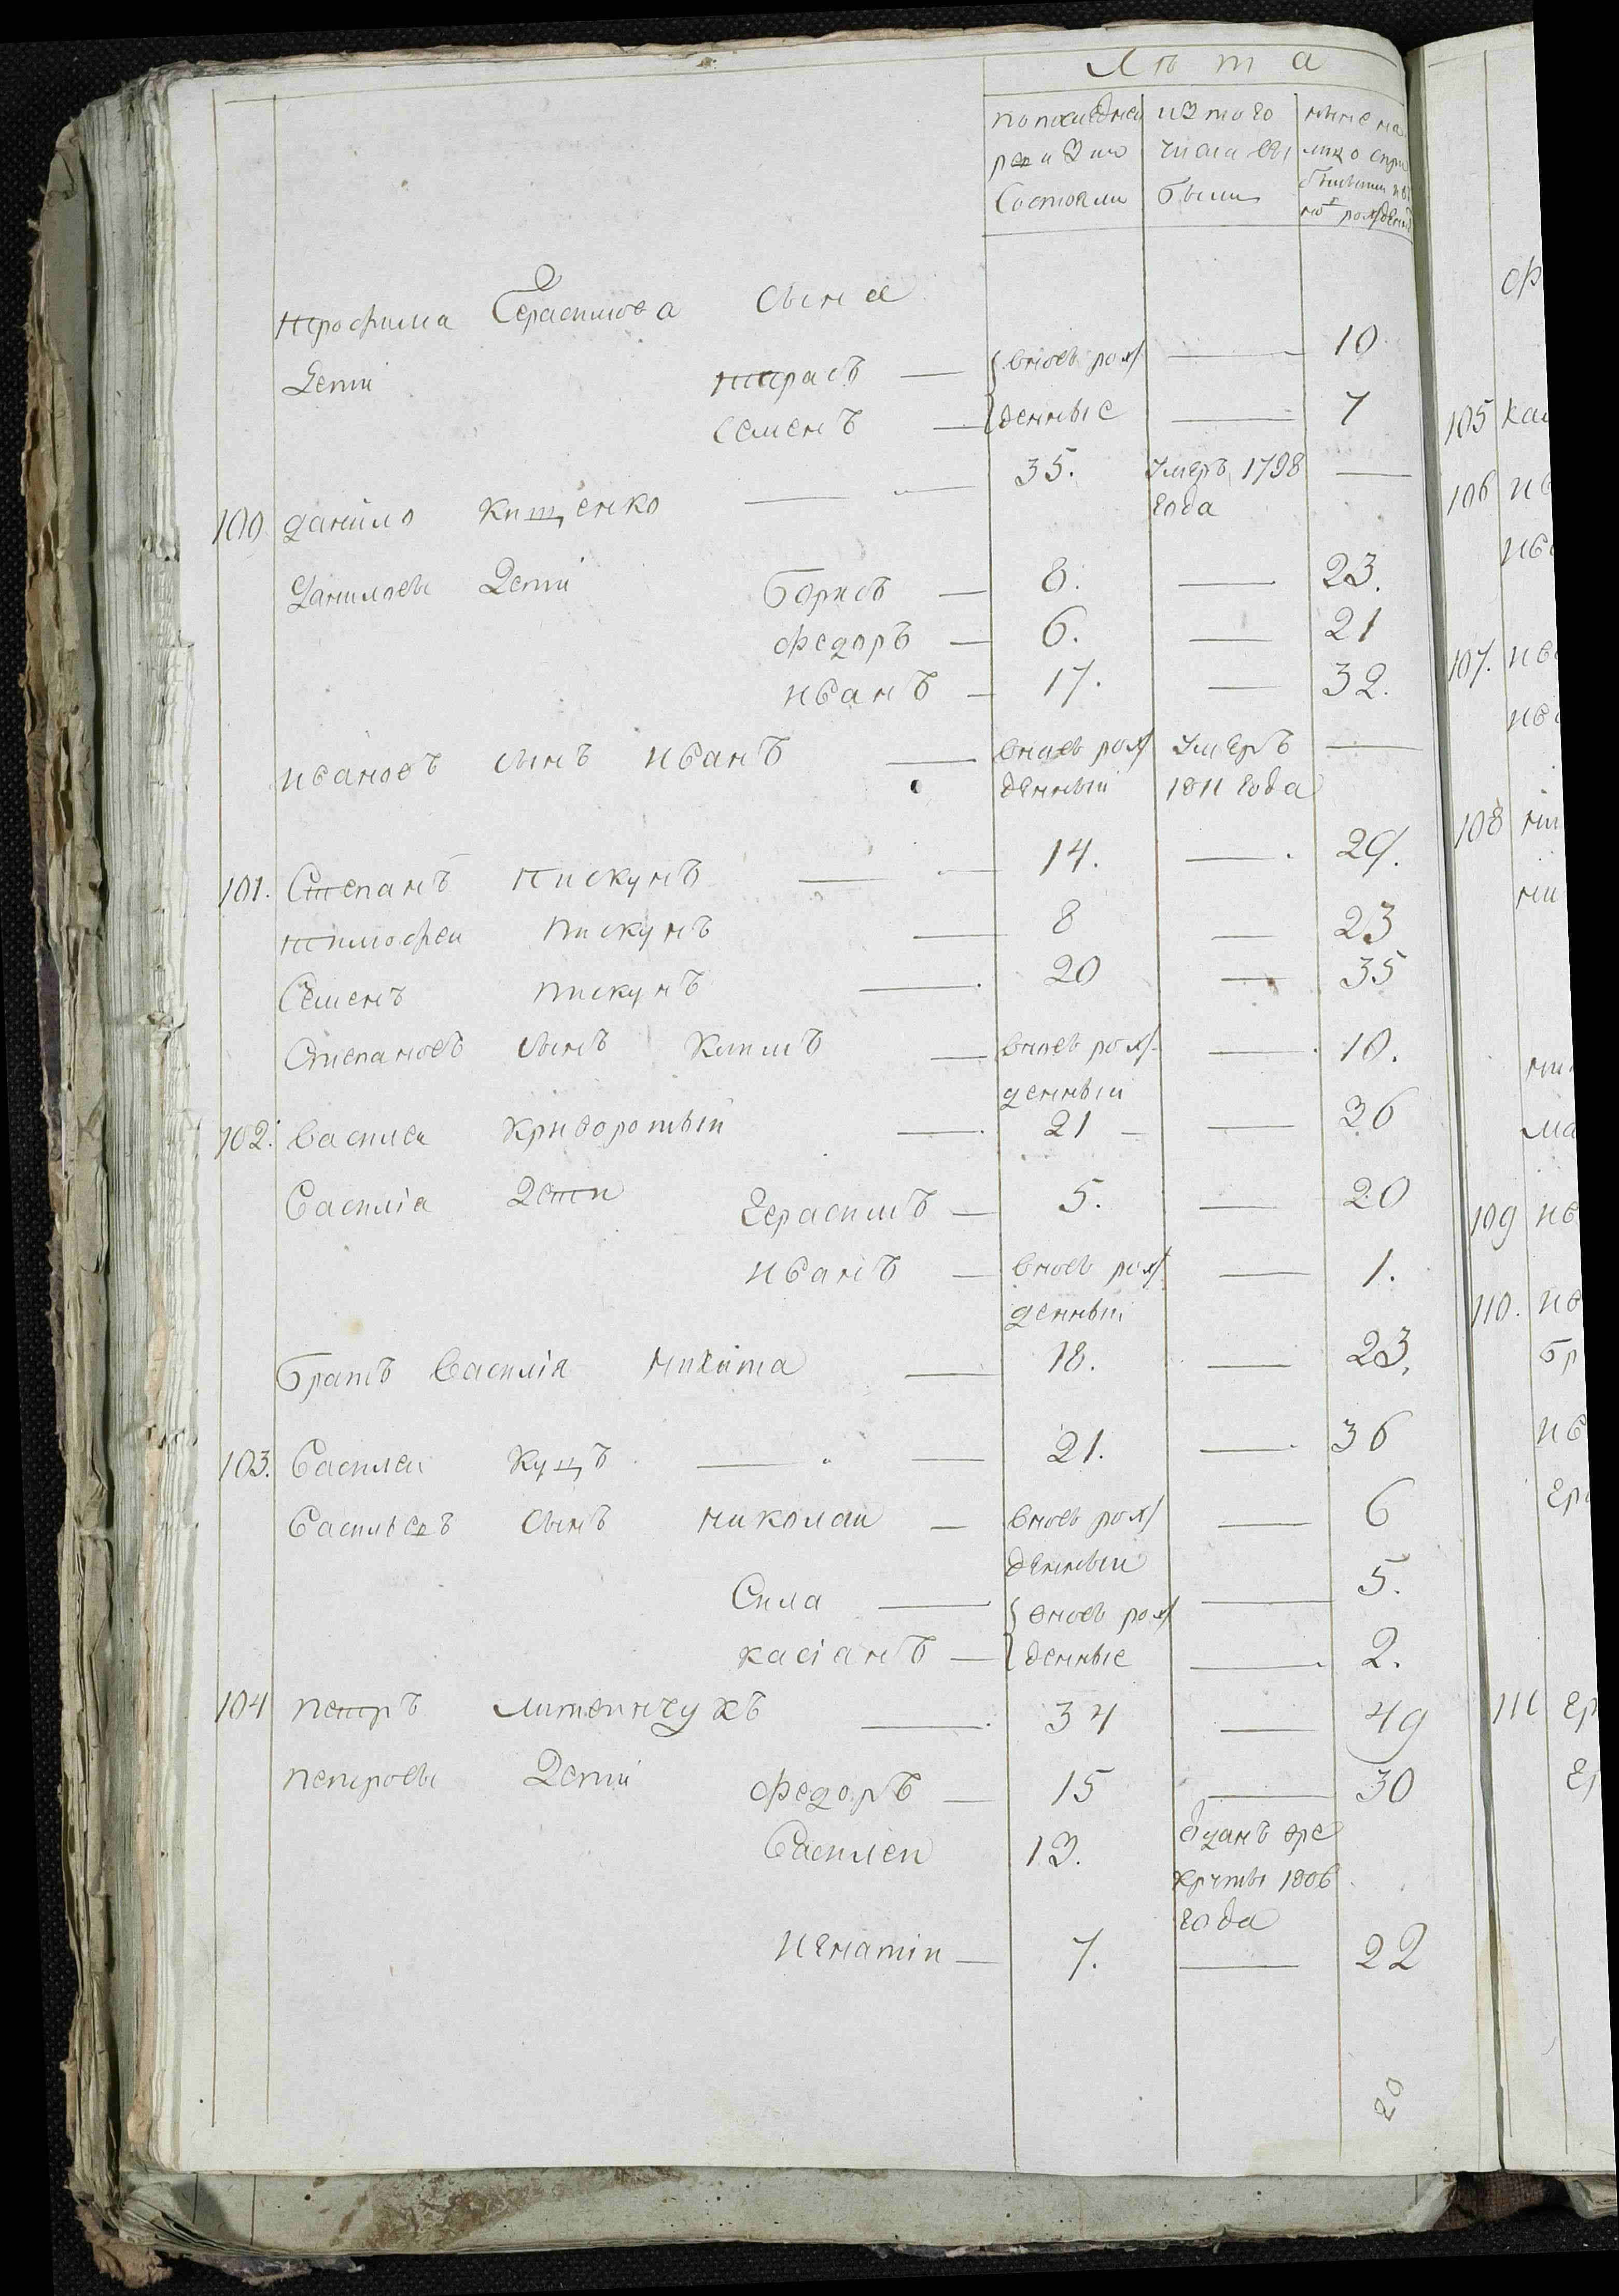 Лѣта
по последней из того ныне на
ревизии числа вы лицо
состояли были
рожденными
Трофима Герасимова сына
Дети Тарасъ — вновь рож — 10
Семенъ — денные — 7
100 Данило Кищенко — 35. умеръ 1798 —
года
Даниловы Дети Борисъ — 8. — 23.
Федоръ — 6. — 21
Иванъ — 17. — 32.
Ивановъ сынъ Иванъ — вновь рож умеръ —
денный 1811 года
101. Степанъ Пискунъ — 14. — 29.
Тимофей Пискунъ — 8 — 23
Семенъ Пискунъ — 20 — 35
Степановъ сынъ Климъ — вновь рож — 10.
денный
102. Василей Криворотый — 21 — 36
Василія Дети Герасимъ — 5. — 20
Иванъ — вновь рож — 1.
денный
Братъ Василія Никита — 18. — 23.
103. Василей Кущъ — 21. — 36
Васильевъ сынъ Николай — вновь рож — 6
денный
Сила — вновь рож — 5.
Касіанъ — денные — 2.
104 Петръ Литвинчукъ — 34 — 49
Петровы Дети Федоръ — 15 — 30
Василей 13. отданъ в ре
круты 1806
года
Игнатій — 7. — 22
105
106
107.
108
109
110.
111